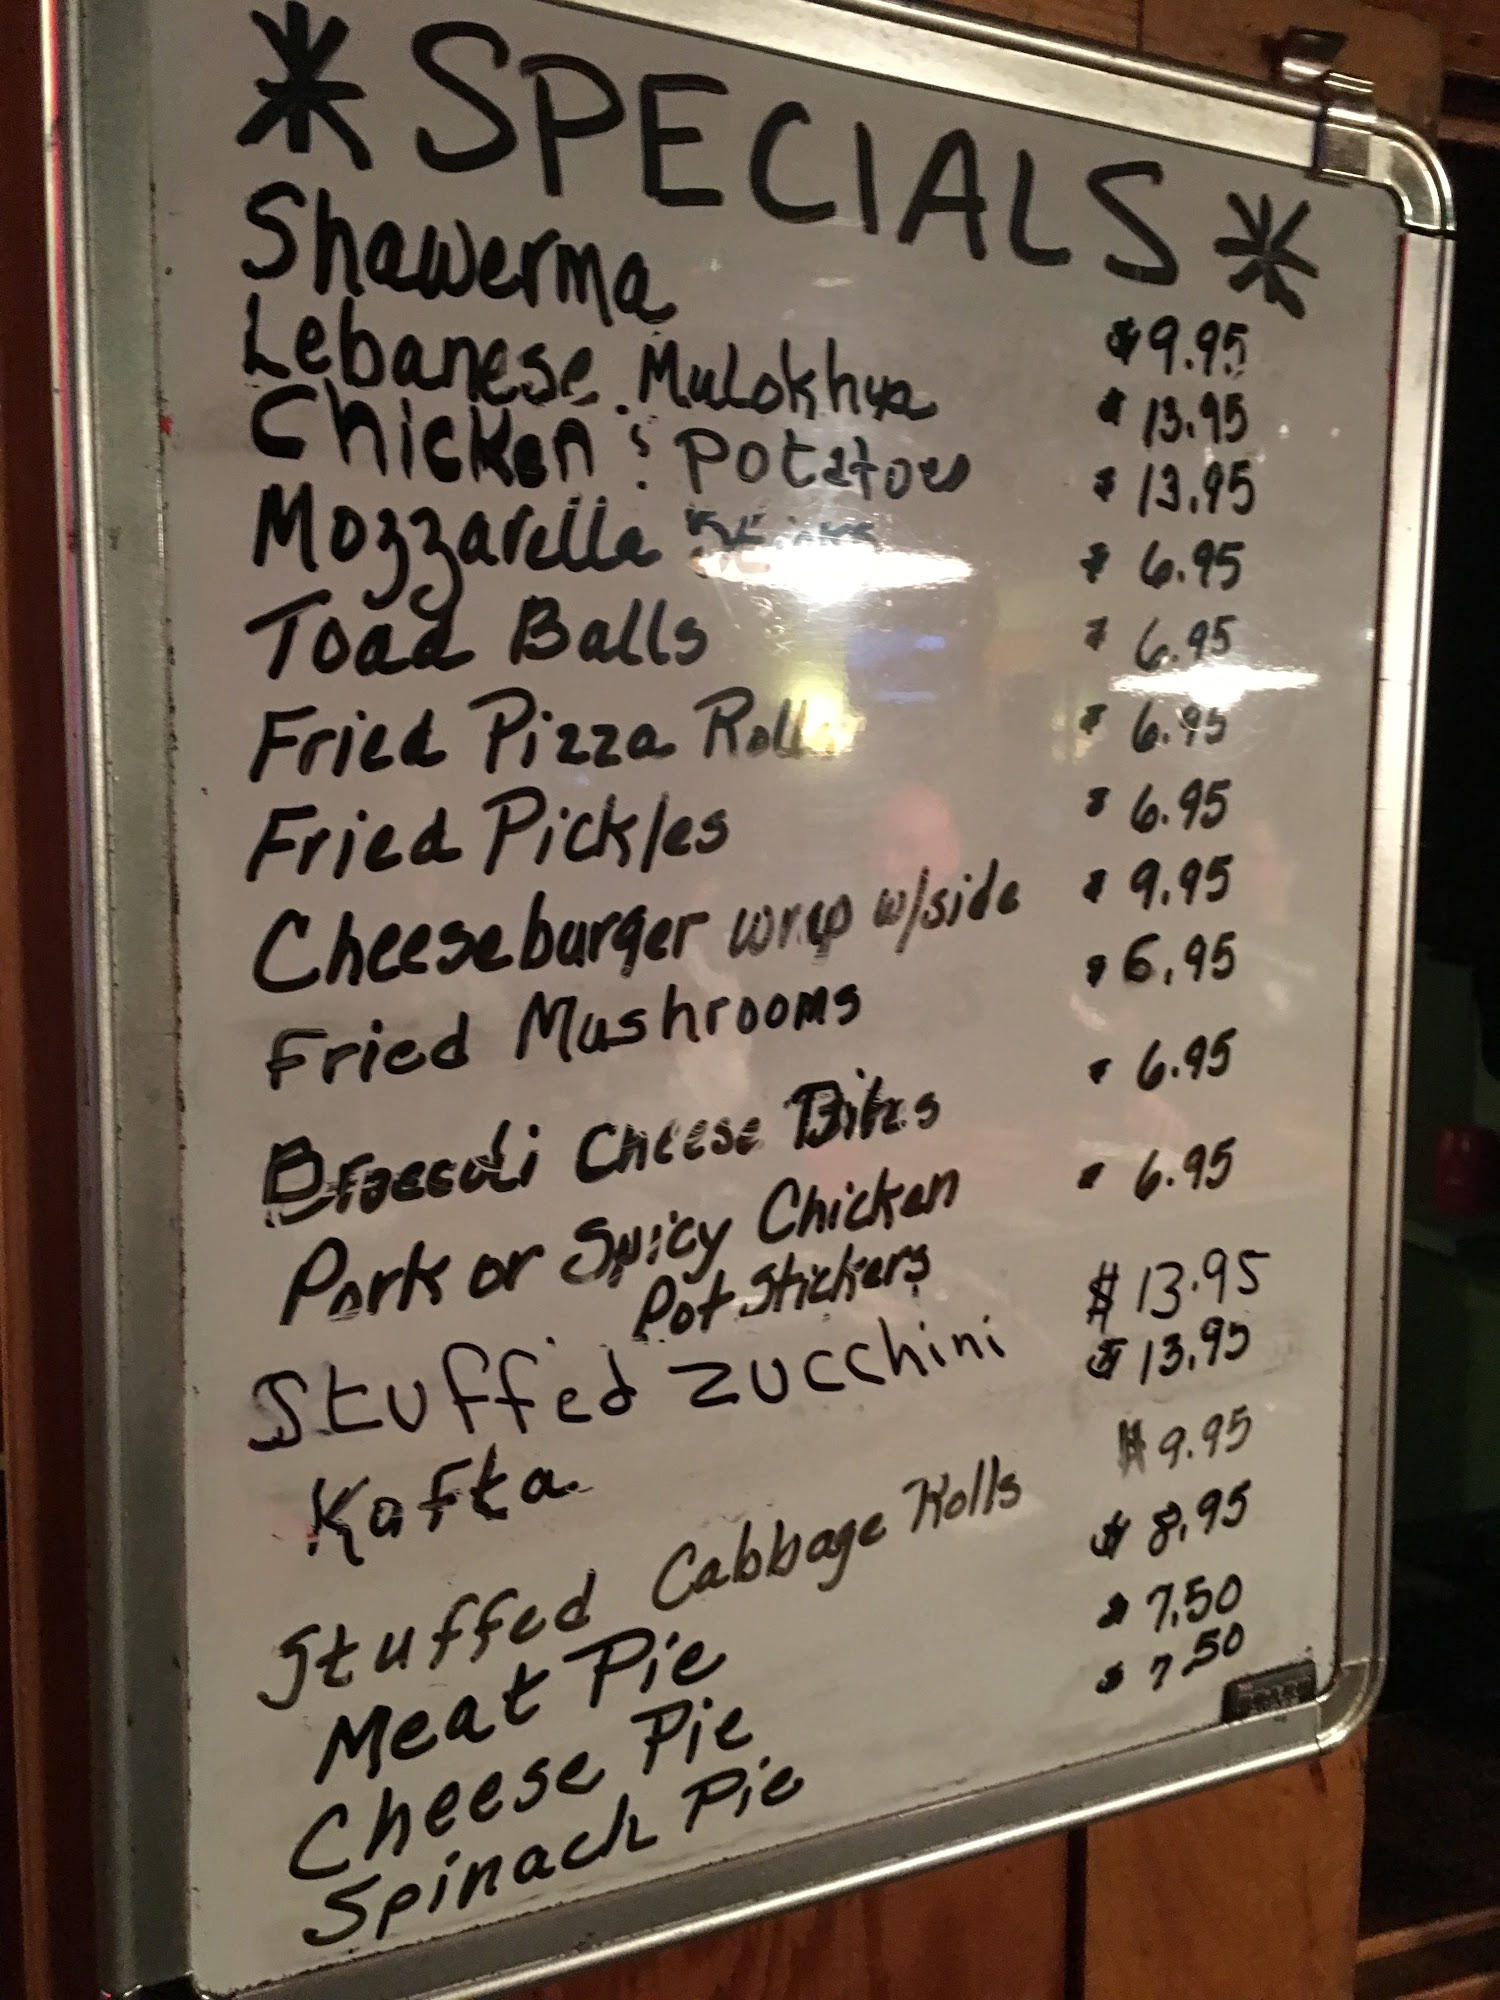 * SPECIALS *
Shawerma $9.95
Lebanese Mulokhya $13.95
Chicken & Potatoes $13.95
Mozzarella Sticks $6.95
Toad Balls $6.95
Fried Pizza Rolls $6.95
Fried Pickles $6.95
Cheeseburger wrap w/side $9.95
Fried Mushrooms $6.95
Broccoli Cheese Bites $6.95
Pork or Spicy Chicken $6.95
Pot Stickers
Stuffed Zucchini $13.95
Kafta $13.95
Stuffed Cabbage Rolls $9.95
Meat Pie $8.95
Cheese Pie $7.50
Spinach Pie $7.50